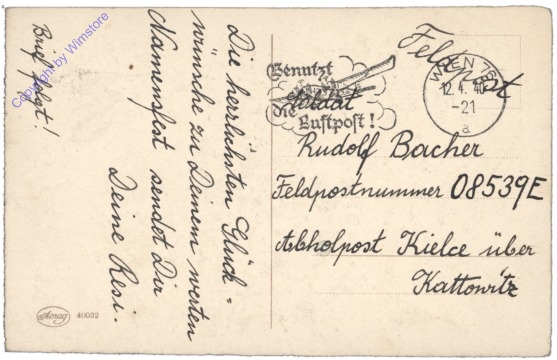 Copyright by Wimstore
Brief folgt!
Die herrlichsten Glück=
wünsche zu Deinem werten
Namensfest sendet Dir
Deine Resi.
Amag 40032
Feldpost
Benutzt
die
Luftpost!
WIEN 76
12. 4. 40
-21
a
Soldat
Rudolf Bacher
Feldpostnummer 08539E
Abholpost Kielce über
Kattowitz